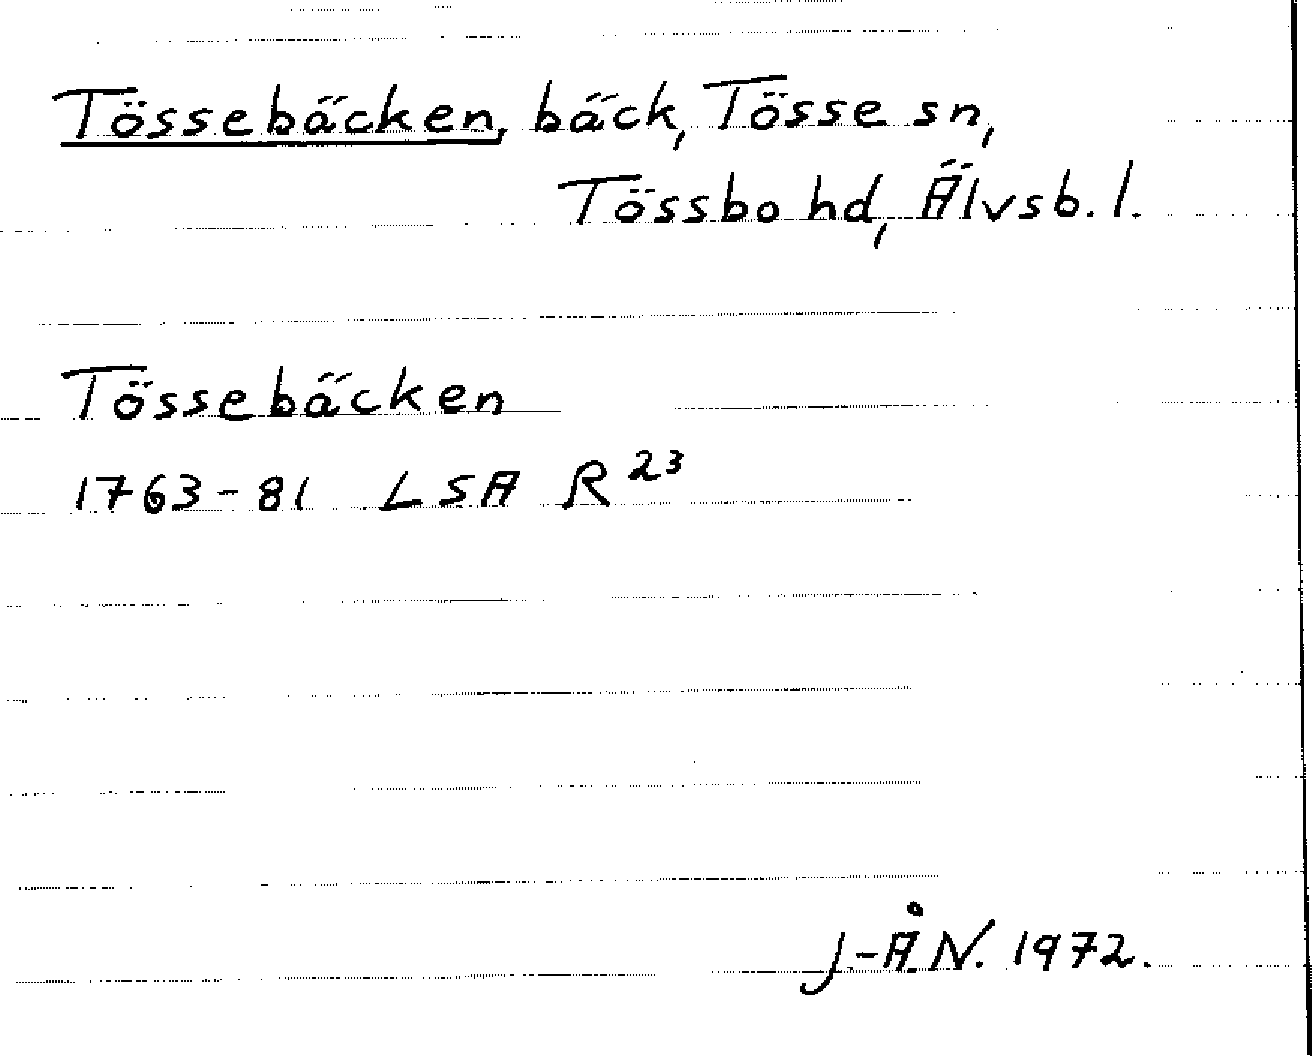 Tössebäcken, bäck, Tösse sn,
Tössbo hd, Älvsb. l.
Tössebäcken
1763-81 LSA R 23
J-ÅN. 1972.